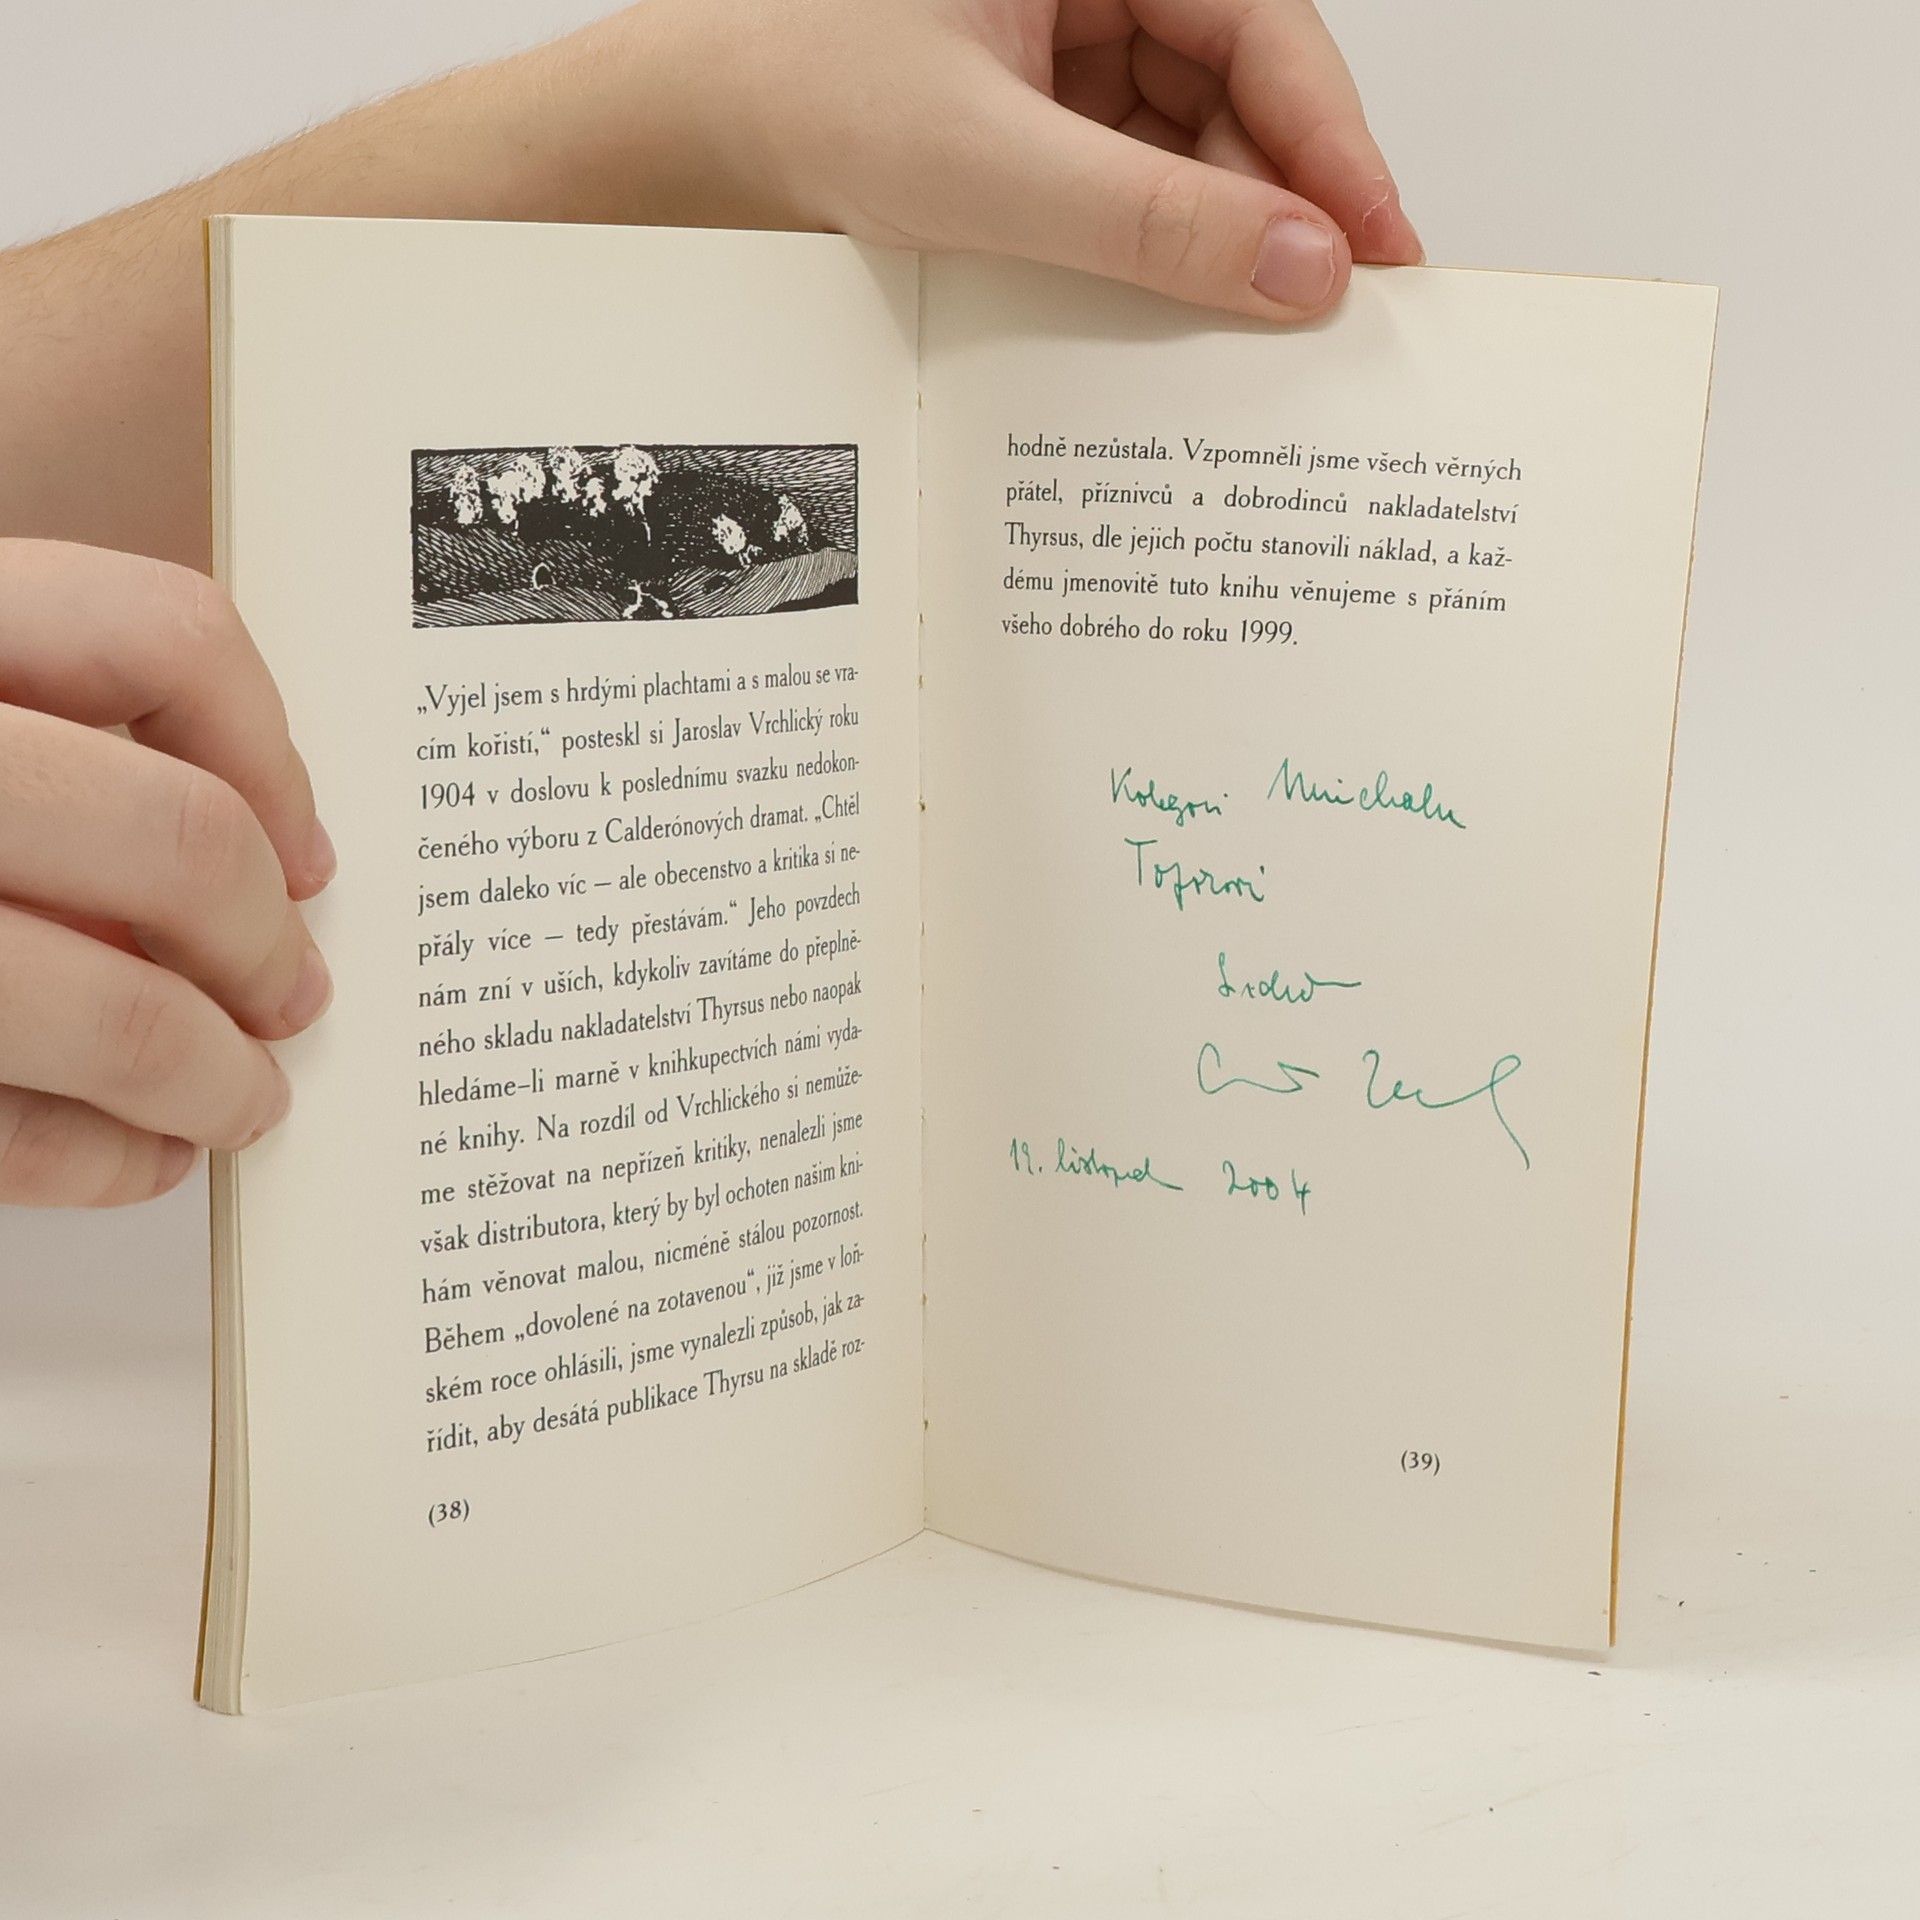 „Vyjel jsem s hrdými plachtami a s malou se vra-
cím kořistí,“ posteskl si Jaroslav Vrchlický roku
1904 v doslovu k poslednímu svazku nedokon-
čeného výboru z Calderónových dramat. „Chtěl
jsem daleko víc – ale obecenstvo a kritika si ne-
přály více – tedy přestávám.“ Jeho povzdech
nám zní v uších, kdykoliv zavítáme do přeplně-
ného skladu nakladatelství Thyrsus nebo naopak
hledáme-li marně v knihkupectvích námi vyda-
né knihy. Na rozdíl od Vrchlického si nemůže-
me stěžovat na nepřízeň kritiky, nenalezli jsme
však distributora, který by byl ochoten našim kni-
hám věnovat malou, nicméně stálou pozornost.
Během „dovolené na zotavenou“, již jsme v loň-
ském roce ohlásili, jsme vynalezli způsob, jak za-
řídit, aby desátá publikace Thyrsu na skladě roz-
(38)
hodně nezůstala. Vzpomněli jsme všech věrných
přátel, příznivců a dobrodinců nakladatelství
Thyrsus, dle jejich počtu stanovili náklad, a kaž-
dému jmenovitě tuto knihu věnujeme s přáním
všeho dobrého do roku 1999.
Kolegovi
listopad 2004
(39)